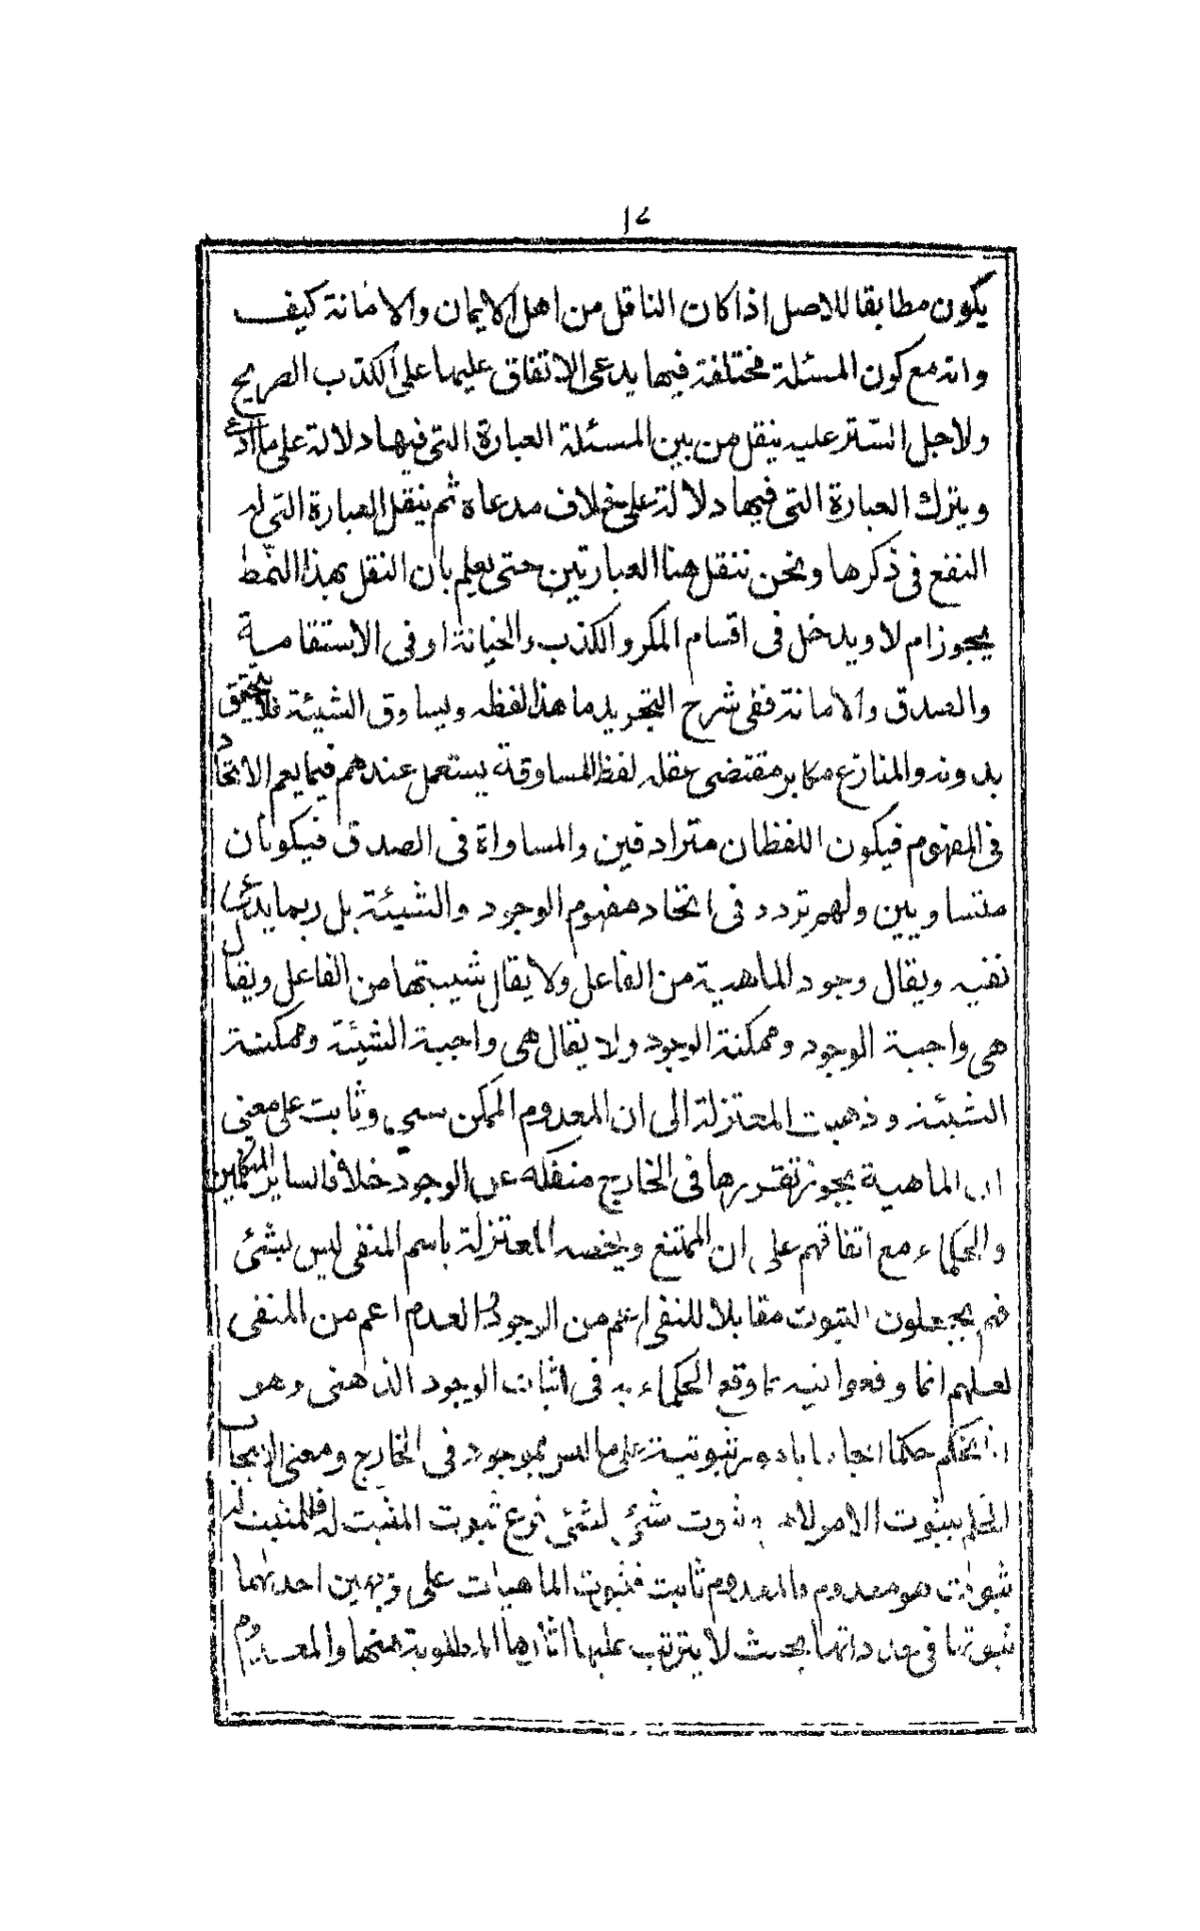 ١٧
يكون مطابقا للاصل اذا كان الناقل من اهل الايمان والامانة كيف
وانه مع كون المسئلة مختلفة فيها يدعى الاتفاق عليها على الكذب الصريح
ولاجل الستر عليه ينقل من بين المسئلة العبارة التى فيها دلالة على ما ادعى
ويترك العبارة التى فيها دلالة على خلاف مدعاه ثم ينقل العبارة التى له
النفع فى ذكرها ونحن ننقل هنا العبارتين حتى يعلم بان النقل بهذا النّمط
يجوز ام لا ويدخل فى اقسام المكر والكذب والخيانة او فى الاستقامة
والصدق والامانة ففى شرح التجريد ما هذا لفظه ويساوق الشيئة فلا يتحقق
بدونه والمنازع مكابر مقتضى عقله لفظ المساوقة يستعمل عندهم فيما يعم الاتحاد
فى المفهوم فيكون اللفظان مترادفين والمساواة فى الصدق فيكونان
متساويين ولهم تردد فى اتحاد مفهوم الوجود والشيئة بل ربما يدعى
نفيه ويقال وجود الماهية من الفاعل ولا يقال شيبتها من الفاعل ويقال
هى واجبة الوجود وممكنة الوجود ولا يقال هى واجبة الشيئة وممكنة
الشيئة وذهبت المعتزلة الى ان المعدوم الممكن شىء وثابت على معنى
ان الماهية يجوز تقررها فى الخارج منفكة عن الوجود خلافا لساير المتكلمين
والحكماء مع اتفاقهم على ان الممتنع ويخصه المعتزلة باسم المنفى ليس بشئ
فهم يجعلون الثبوت مقابلا للنفى اعم من الوجود والعدم اعم من المنفى
لعلهم انما وقعوا فيه بما وقع الحكماء به فى اثبات الوجود الذهنى وهو
انا نحكم حكما ايجابيا بامور ثبوتية على ما ليس بموجود فى الخارج ومعنى الايجاب
الحكم بثبوت الامر لامر وثبوت شئ لشئ فرع ثبوت المثبت له فللمثبت له
ثبوت هو معدوم فالمعدوم ثابت فثبوت الماهيات على وجهين احديهما
ثبوتها فى حد ذاتها بحيث لا يترتب عليها اثارها المطلوبة منها والمعدوم